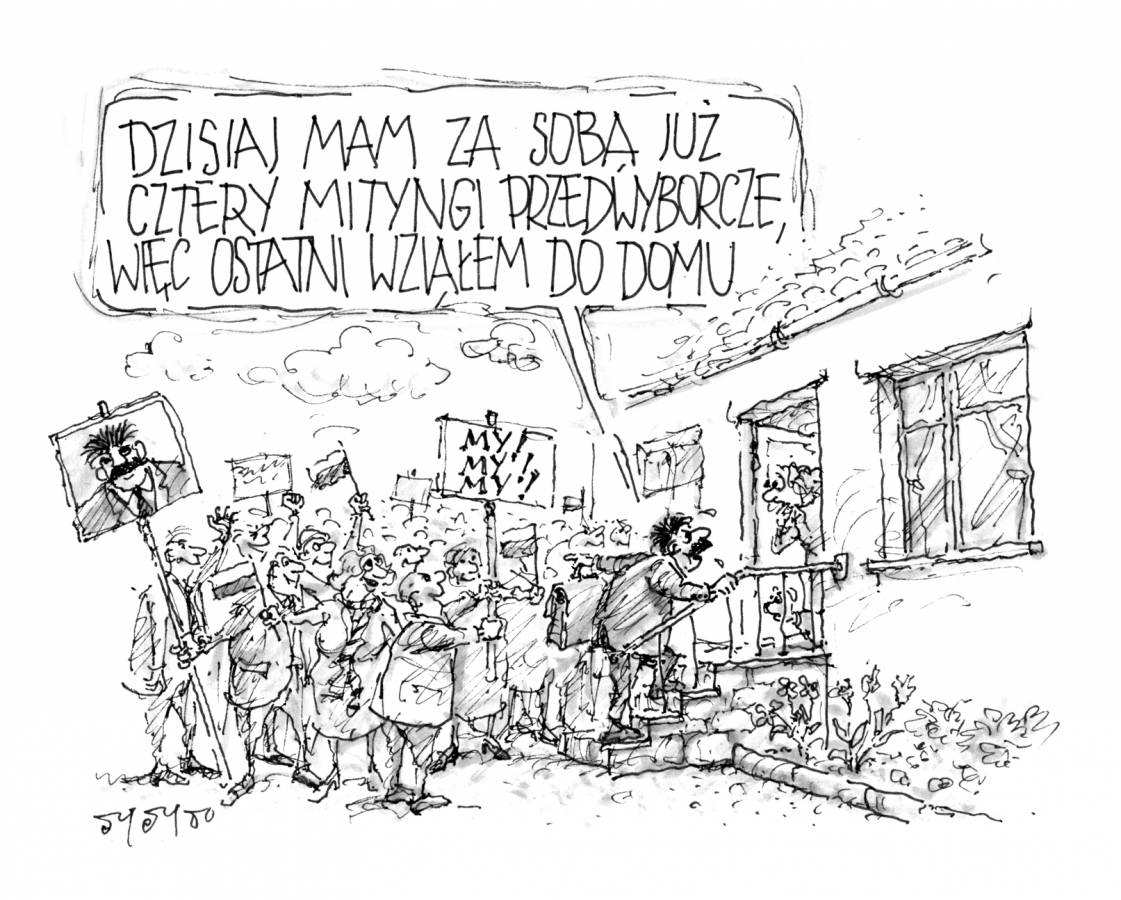 DZISIAJ MAM ZA SOBĄ JUŻ
CZTERY MITYNGI PRZEDWYBORCZE,
WIĘC OSTATNI WZIĄŁEM DO DOMU
MY!
MY!
MY!